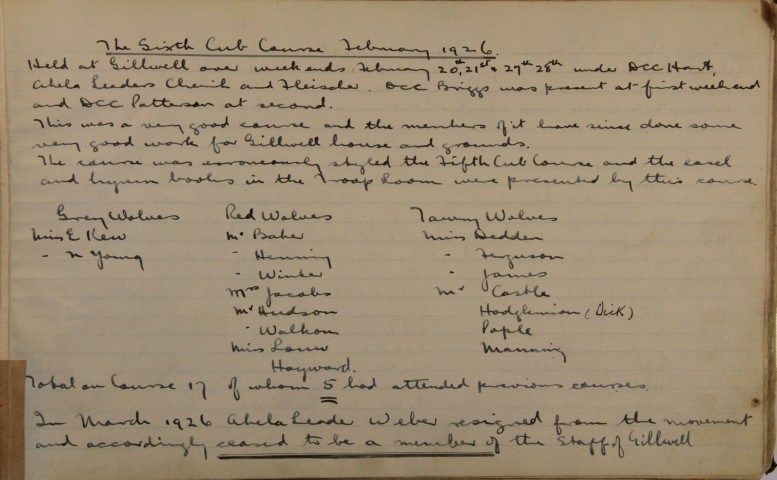 The Sixth Cub Course February 1926.
Held at Gillwell over weekends February 20th, 21st & 27th 28th under DCC Hart,
Akela Leaders Cherich and Fleischer. DCC Briggs was present at first weekend
and DCC Patterson at second.
This was a very good course and the members of it have since done some
very good work for Gillwell house and grounds.
The course was erroneously styled the Fifth Cub Course and the easel
and hymn books in the Troop Room were presented by this course.
Grey Wolves Red Wolves Tawny Wolves
Miss E Kew Mr Baker Miss Dedden
" N Young " Henning " Ferguson
" Winter " James
Mrs Jacobs Mr Castle
Mr Hudson Hodgkinson (Dick)
" Walkom Pople
Miss Louw Manning
Hayward.
Total on Course 17 of whom 5 had attended previous courses.
In March 1926 Akela Leader Weber resigned from the movement
and accordingly ceased to be a member of the Staff of Gillwell